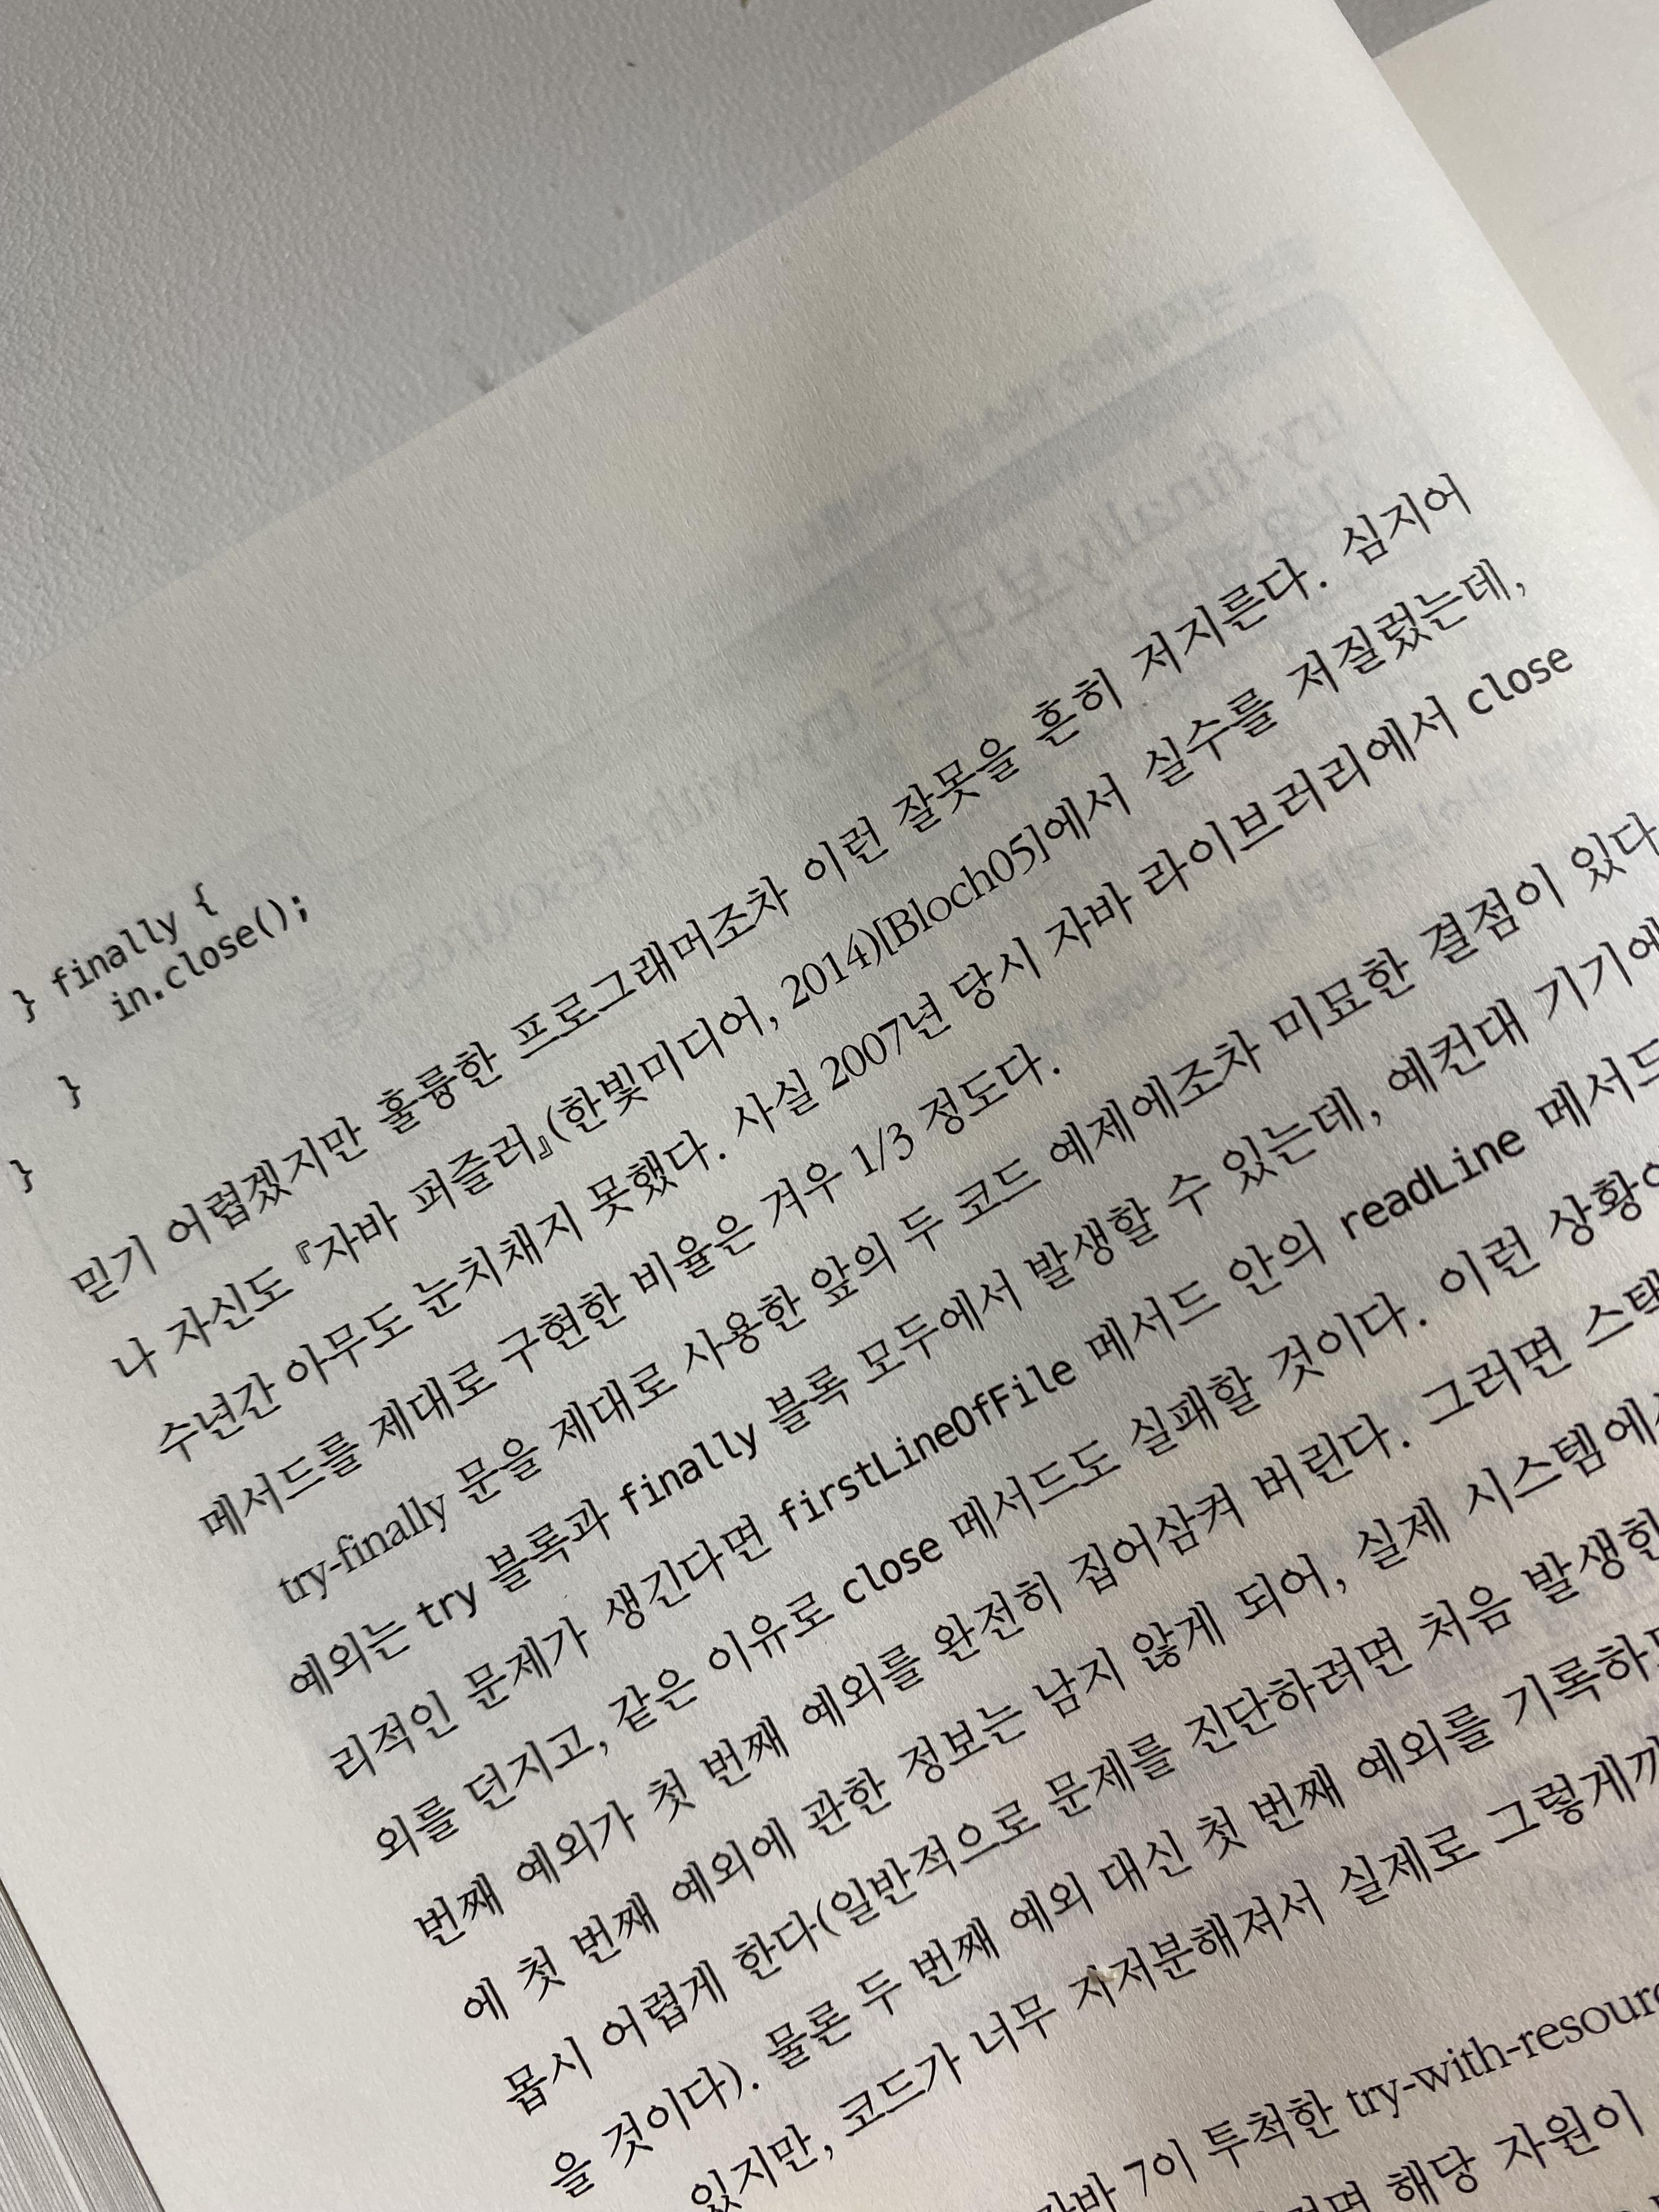 } finally {
in.close();
}
}
믿기 어렵겠지만 훌륭한 프로그래머조차 이런 잘못을 흔히 저지른다. 심지어
나 자신도 『자바 퍼즐러』(한빛미디어, 2014)[Bloch05]에서 실수를 저질렀는데,
수년간 아무도 눈치채지 못했다. 사실 2007년 당시 자바 라이브러리에서 close
메서드를 제대로 구현한 비율은 겨우 1/3 정도다.
try-finally 문을 제대로 사용한 앞의 두 코드 예제에조차 미묘한 결점이 있다
예외는 try 블록과 finally 블록 모두에서 발생할 수 있는데, 예컨대 기기에
리적인 문제가 생긴다면 firstLineOfFile 메서드 안의 readLine 메서드
외를 던지고, 같은 이유로 close 메서드도 실패할 것이다. 이런 상황이
번째 예외가 첫 번째 예외를 완전히 집어삼켜 버린다. 그러면 스택
에 첫 번째 예외에 관한 정보는 남지 않게 되어, 실제 시스템에서
몹시 어렵게 한다(일반적으로 문제를 진단하려면 처음 발생한
을 것이다). 물론 두 번째 예외 대신 첫 번째 예외를 기록하
있지만, 코드가 너무 지저분해져서 실제로 그렇게까
자바 7이 투척한 try-with-resour
해당 자원이